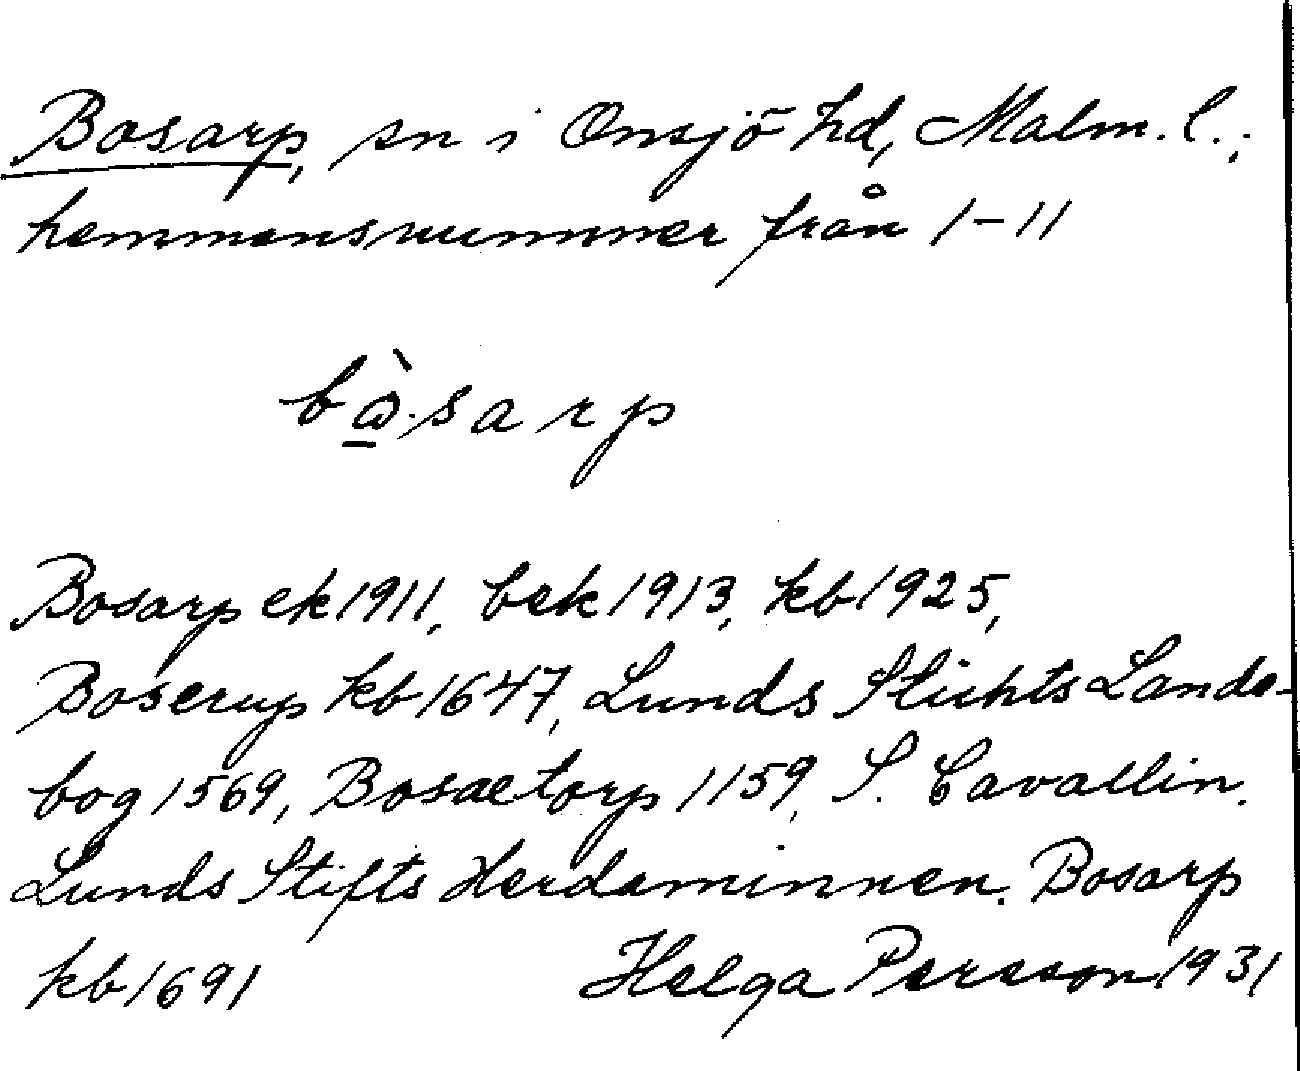 Bosarp, sn i Onsjö hd, Malm. l.;
hemmansnummer från 1-11
bò̲.sarp
Bosarp ek 1911, bek 1913, kb 1925,
Boserup kb 1647, Lunds Stichts Lande-
bog 1569, Bosætorp 1159, S. Cavallin.
Lunds Stifts Herdaminnen. Bosarp
kb 1691 Helga Persson 1931